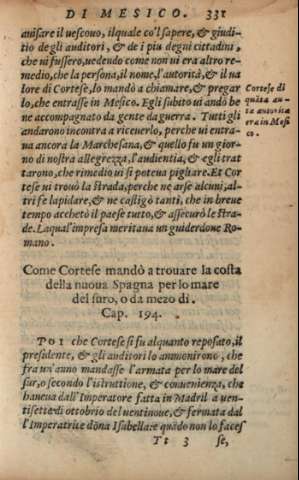 DI MESICO. 331
auisare il uescouo, ilquale co'l sapere, & giudi-
tio degli auditori, & de i piu degni cittadini,
che ui fussero, uedendo come non ui era altro re-
medio, che la persona, il nome, l'autorità, & il ua
lore di Cortese, lo mandò a chiamare, & pregar
lo, che entrasse in Mesico. Egli subito ui andò be
ne accompagnato da gente da guerra. Tutti gli
andarono incontra a riceuerlo, perche ui entra-
ua ancora la Marchesana, & quello fu un gior-
no di nostra allegrezza, l'audientia, & egli trat
tarono, che rimedio ui si poteua pigliare. Et Cor
tese ui trouò la strada, perche ne arse alcuni, al-
tri fe lapidare, & ne castigò tanti, che in breue
tempo acchetò il paese tutto, & assecurò le stra-
de. Laqual'impresa meritaua un guiderdone Ro-
mano.
Cortese di
quãta au-
ta autorita
era in Mesi
co.
Come Cortese mandò a trouare la costa
della nuoua Spagna per lo mare
del suro, o da mezo di.
Cap. 194.
POI che Cortese si fu alquanto reposato, il
presidente, & gli auditori lo ammonirono, che
fra un'anno mandasse l'armata per lo mare del
sur, o secondo l'istruttione, & conuenienza, che
haueua dall'Imperatore fatta in Madril a uen-
tisette di ottobrio del uentinoue, & fermata dal
l'Imperatrice dõna Isabella: e quãdo non lo faces
Tt 3 se,